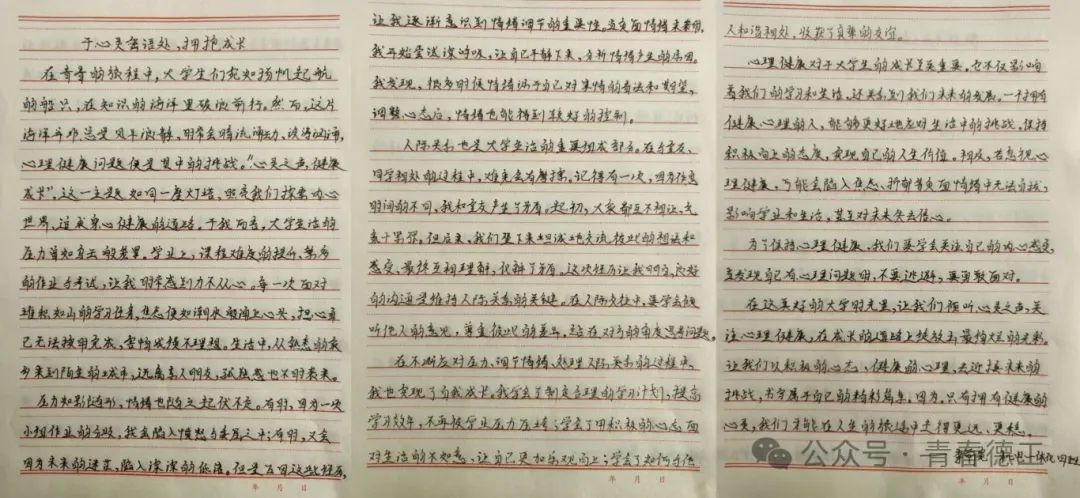 于心灵奋进处,拥抱成长
在青春的旅程中,大学生们宛如扬帆起航
的船只,在知识的海洋里破浪前行。然而,这片
海洋并非总是风平浪静,时常会暗流涌动,波涛汹涌,
心理健康问题便是其中的挑战。“心灵之声,健康
成长”,这一主题如同一座灯塔,照亮我们探索内心
世界、追求身心健康的道路。于我而言,大学生活的
压力首如其来的是学业。学业上,课程难度的提升,繁多
的作业与考试,让我时常感到力不从心。每一次面对
堆积如山的学习任务,焦虑便如潮水般涌上心头,担心自
己无法按时完成,害怕成绩不理想。生活中,从熟悉的家
乡来到陌生的城市,远离亲人朋友,孤独感也不时袭来。
压力如影随形,情绪也随之起伏不定。有时,因为一次
小组作业的分歧,我会陷入愤怒与委屈之中;有时,又会
因为未来的迷茫,陷入深深的低落。但是正因这些经历,
让我逐渐意识到情绪调节的重要性。当负面情绪来袭时,
我开始尝试深呼吸,让自己平静下来,分析情绪产生的原因。
我发现,很多时候情绪源于自己对事情的看法和期望,
调整心态后,情绪也能得到较好的控制。
人际关系也是大学生活的重要组成部分。在与室友、
同学相处的过程中,难免会有摩擦。记得有一次,因为作息
时间的不同,我和室友产生了矛盾。起初,大家都互不相让,气
氛十分紧张。但后来,我们坐下来坦诚地交流彼此的想法和
感受,最终互相理解,化解了矛盾。这次经历让我明白,良好
的沟通是维持人际关系的关键。在人际交往中,要学会倾
听他人的意见,尊重彼此的差异,站在对方的角度思考问题。
在不断应对压力、调节情绪、处理人际关系的过程中,
我也实现了自我成长。我学会了制定合理的学习计划,提高
学习效率,不再被学业压力压垮;学会了用积极的心态面
对生活的不如意,让自己更加乐观向上;学会了如何与他
人和谐相处,收获了真挚的友谊。
心理健康对于大学生的成长至关重要,它不仅影响
着我们的学习和生活,还关系到我们未来的发展。一个拥有
健康心理的人,能够更好地应对生活中的挑战,保持
积极向上的态度,实现自己的人生价值。相反,若忽视心
理健康,可能会陷入焦虑、抑郁等负面情绪中无法自拔,
影响学业和生活,甚至对未来失去信心。
为了保持心理健康,我们要学会关注自己的内心感受,
当发现自己有心理问题时,不要逃避,要勇敢面对。
在这美好的大学时光里,让我们倾听心灵之声,关
注心理健康,在成长的道路上绽放出最绚烂的光彩。
让我们以积极的心态、健康的心理,去迎接未来的
挑战,书写属于自己的精彩篇章。因为,只有拥有健康的
心灵,我们才能在人生的旅途中走得更远、更稳。
年 月 日
年 月 日
年 月 日
公众号·青春德正